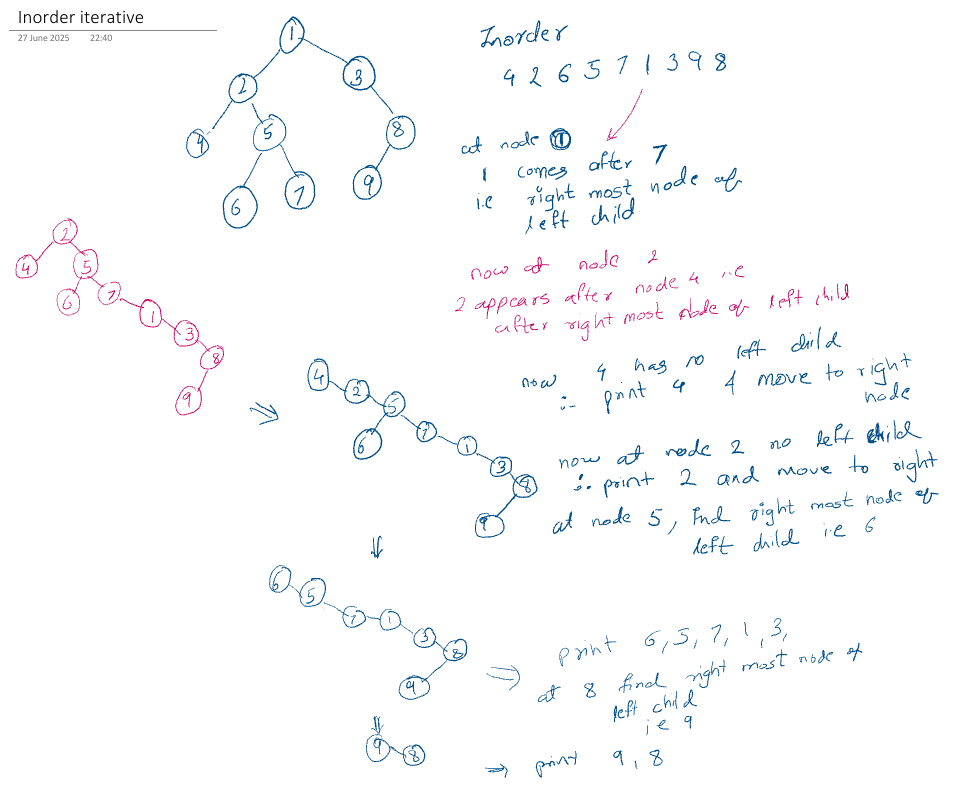 Inorder iterative
27 June 2025 22:40
1
2 3
4 5 8
6 7 9
Inorder
4 2 6 5 7 1 3 9 8
at node 1
1 comes after 7
i.e right most node of
left child
2
4 5
6 7
1
3
8
9
now at node 2
2 appears after node 4 i.e
after right most node of left child
4
2
5
6 7
1
3
8
9
now 4 has no left child
∴ print 4 & move to right
node
now at node 2 no left child
∴ print 2 and move to right
at node 5, Find right most node of
left child i.e 6
6 5
7 1
3
8
9
⇒ print 6, 5, 7, 1, 3,
at 8 find right most node of
left child
i.e 9
9 8
⇒ print 9, 8